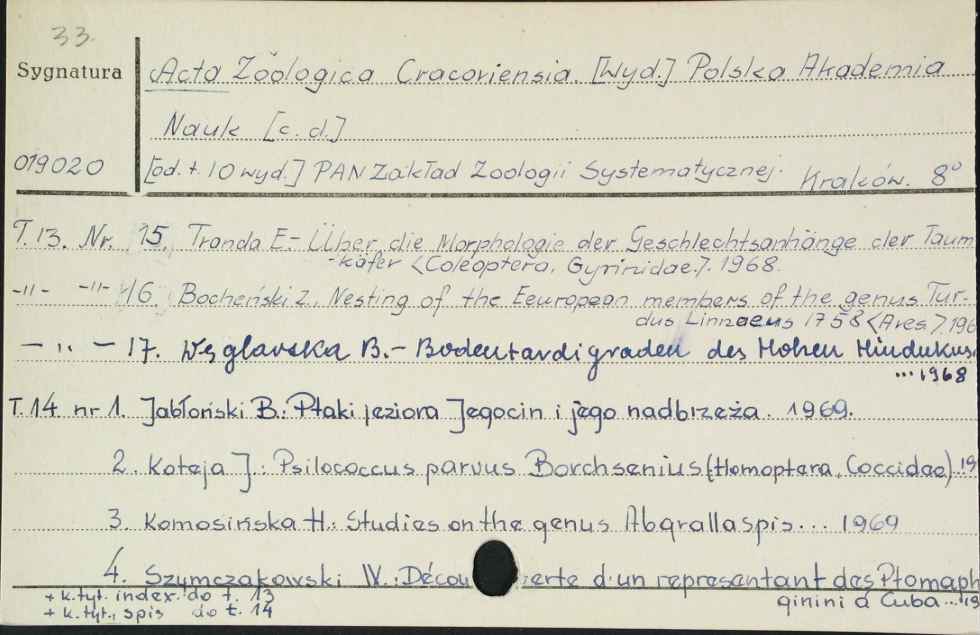 33.
Sygnatura
Acta Zoologica Cracoviensia. [Wyd.] Polska Akademia
Nauk [c.d.]
019020
[od. t. 10 wyd.] PAN Zakład Zoologii Systematycznej. Kraków. 8°
T. 13. Nr. 15. Tranda E.- Über die Morphologie der Geschlechtsanhänge der Taum
-käfer <Coleoptera, Gyrinidae.>. 1968.
-"- -"- 16. Bocheński Z. Nesting of the Eeuropean members of the genus Tur-
dus Linnaeus 1758 <Aves>. 196
- " - 17. Węglarska B.- Bodentardigraden des Hohen Hindukus
...1968
T. 14. nr 1. Jabłoński B.: Ptaki jeziora Jegocin i jego nadbrzeża. 1969.
2. Koteja J.: Psilococcus parvus Borchsenius (Homoptera, Coccidae)..19
3. Komosińska H.: Studies on the genus Abgrallaspis... 1969
4. Szymczakowski W.: Décou erte d'un representant des Ptomaph
ginini à Cuba...19
+ k. tyt. index. do t. 13
+ k. tyt., spis do t. 14